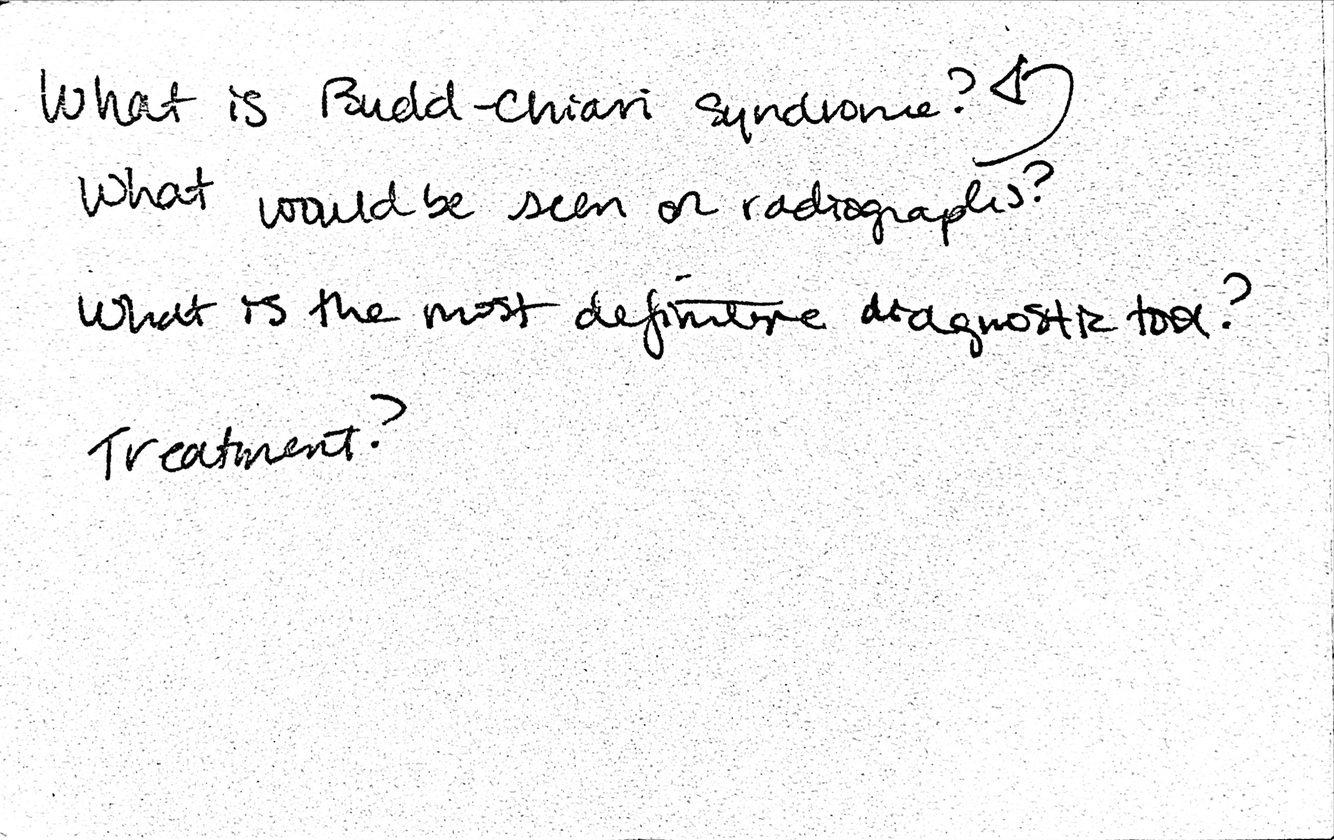 What is Budd-Chiari Syndrome?
What would be seen on radiographs?
What is the most definitive diagnostic tool?
Treatment?